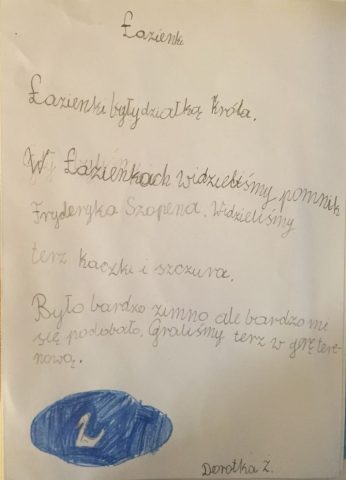 Łazienki
Łazienki były działką Króla.
W Łazienkach widzieliśmy pomnik
Fryderyka Szopena. Widzieliśmy
terz kaczki i szczura.
Było bardzo zimno ale bardzo mi
się podobało. Graliśmy terz w grę tere-
nową.
Dorotka Z.